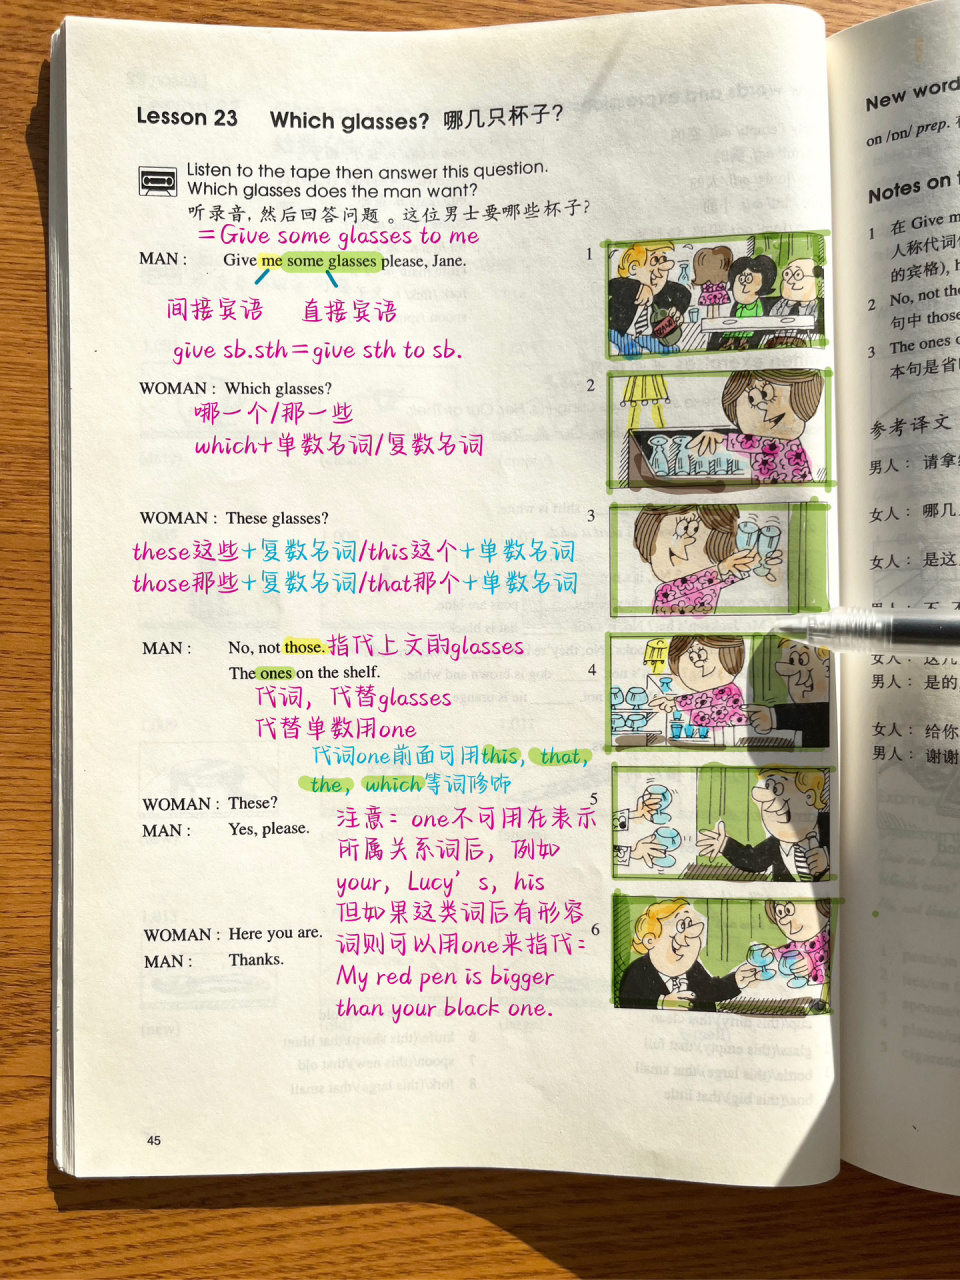 Lesson 23 Which glasses? 哪几只杯子?
Listen to the tape then answer this question.
Which glasses does the man want?
听录音,然后回答问题。这位男士要哪些杯子?
=Give some glasses to me
MAN : Give me some glasses please, Jane.
1
间接宾语 直接宾语
give sb.sth=give sth to sb.
WOMAN : Which glasses?
2
哪一个/那一些
which+单数名词/复数名词
WOMAN : These glasses?
3
these这些+复数名词/this这个+单数名词
those那些+复数名词/that那个+单数名词
MAN : No, not those.指代上文的glasses
The ones on the shelf.
4
代词，代替glasses
代替单数用one
代词one前面可用this, that,
the, which等词修饰
WOMAN : These?
5
MAN : Yes, please.
注意：one不可用在表示
所属关系词后，例如
your, Lucy's, his
但如果这类词后有形容
词则可以用one来指代：
My red pen is bigger
than your black one.
WOMAN : Here you are.
6
MAN : Thanks.
45
New word
on /ɒn/ prep.
Notes on
1 在 Give m
人称代词
的宾格), h
2 No, not the
句中 those
3 The ones o
本句是省
参考译文
男人： 请拿
女人： 哪几
女人： 是这
男人： 是的,
女人： 给你
男人： 谢谢